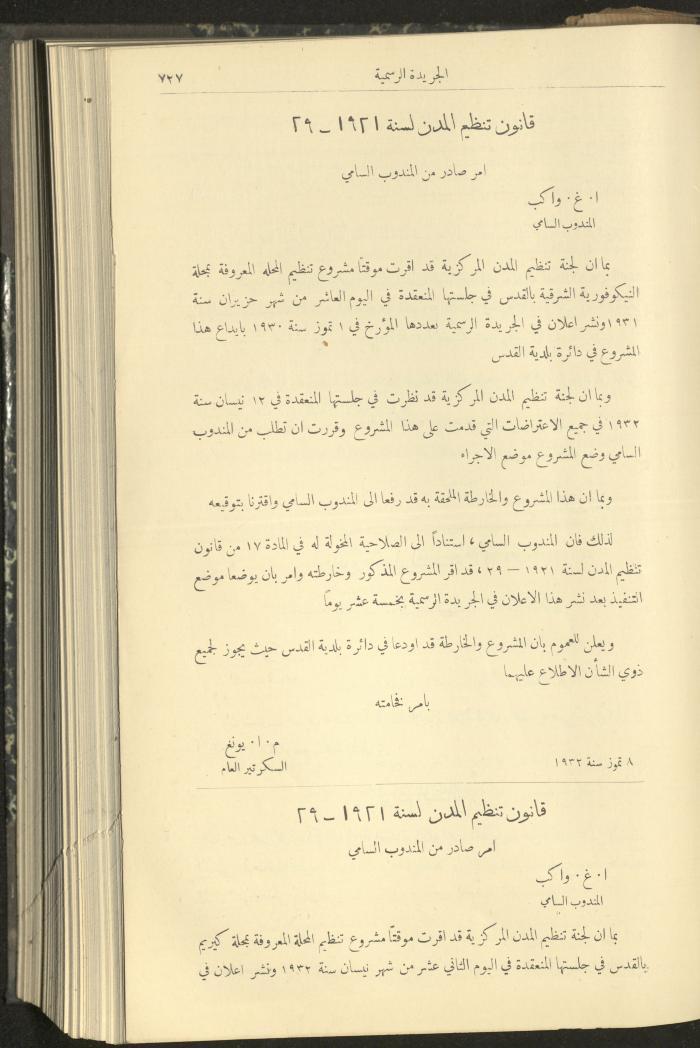 الجريدة الرسمية ٧٢٧
قانون تنظيم المدن لسنة ١٩٢١ ــ ٢٩
امر صادر من المندوب السامي
ا٠ غ٠ واكب
المندوب السامي
بما ان لجنة تنظيم المدن المركزية قد اقرت موقتًا مشروع تنظيم المحله المعروفة بمحلة
النيكوفورية الشرقية بالقدس في جلستها المنعقدة في اليوم العاشر من شهر حزيران سنة
١٩٣١ ونشر اعلان في الجريدة الرسمية بعددها المؤرخ في ١ تموز سنة ١٩٣٠ بايداع هذا
المشروع في دائرة بلدية القدس
وبما ان لجنة تنظيم المدن المركزية قد نظرت في جلستها المنعقدة في ١٢ نيسان سنة
١٩٣٢ في جميع الاعتراضات التي قدمت على هذا المشروع وقررت ان تطلب من المندوب
السامي وضع المشروع موضع الاجراء
وبما ان هذا المشروع والخارطة الملحقة به قد رفعا الى المندوب السامي واقترنا بتوقيعه
لذلك فان المندوب السامي، استناداً الى الصلاحية المخولة له في المادة ١٧ من قانون
تنظيم المدن لسنة ١٩٢١ — ٢٩، قد اقر المشروع المذكور وخارطته وامر بان يوضعا موضع
التنفيذ بعد نشر هذا الاعلان في الجريدة الرسمية بخمسة عشر يوماً
ويعلن للعموم بان المشروع والخارطة قد اودعا في دائرة بلدية القدس حيث يجوز لجميع
ذوي الشأن الاطلاع عليهما
بامر فخامته
م٠ ا٠ يونغ
٨ تموز سنة ١٩٣٢ السكرتير العام
قانون تنظيم المدن لسنة ١٩٢١ ــ ٢٩
امر صادر من المندوب السامي
ا٠ غ٠ واكب
المندوب السامي
بما ان لجنة تنظيم المدن المركزية قد اقرت موقتًا مشروع تنظيم المحلة المعروفة بمحلة كيريم
بالقدس في جلستها المنعقدة في اليوم الثاني عشر من شهر نيسان سنة ١٩٣٢ ونشر اعلان في